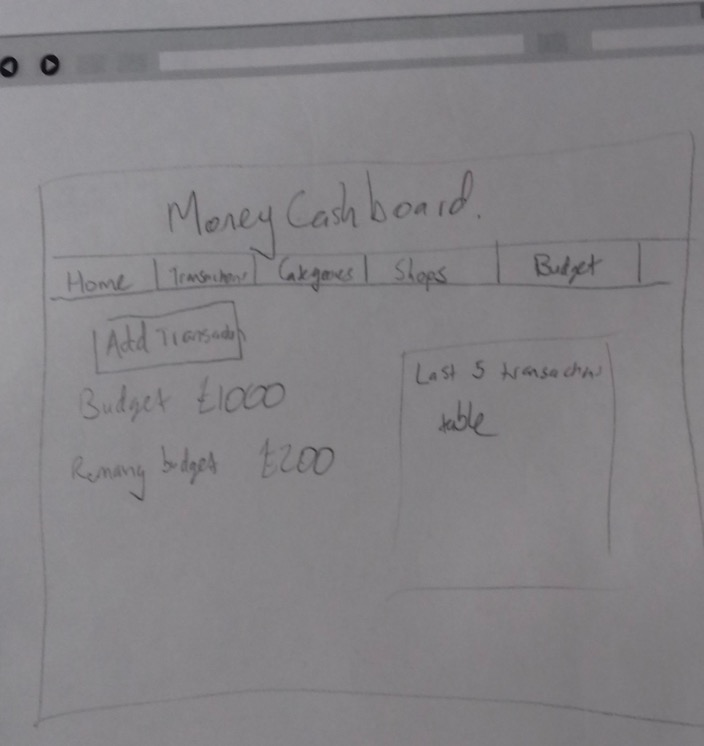 Money Cashboard.
Home Transactions Categories Shops Budget
Add Transacti
Budget £1000
Remaing budget £200
Last 5 transactns
table